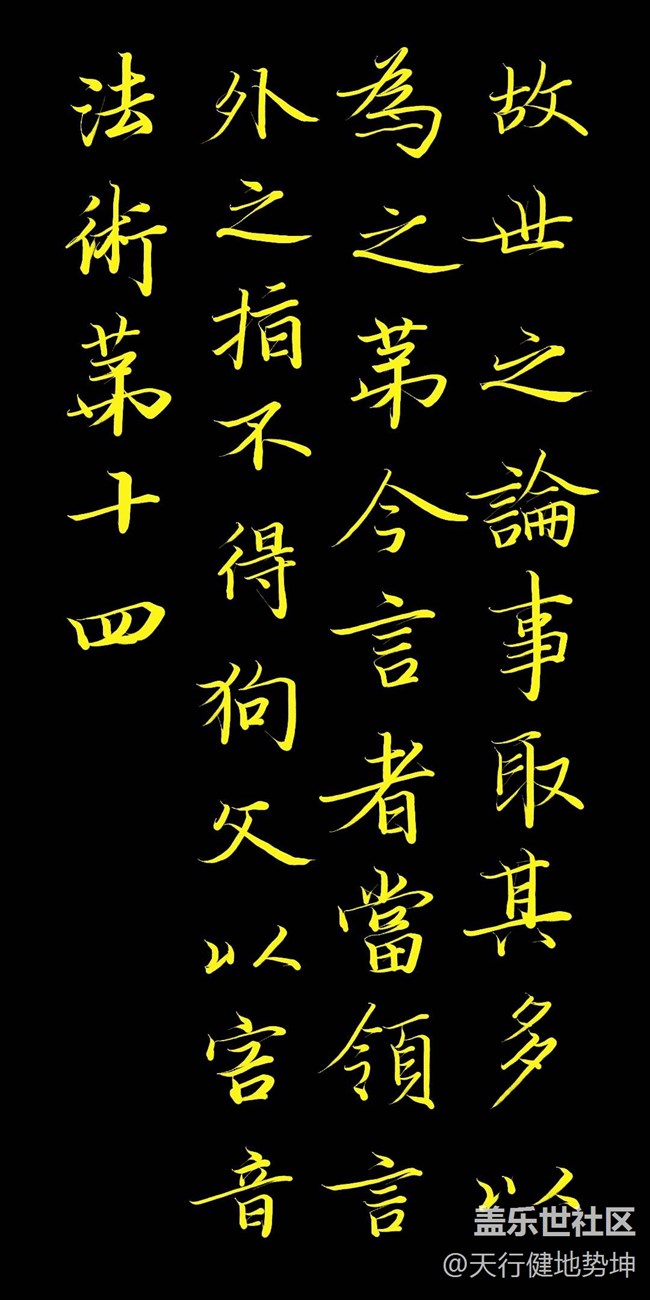 故世之論事取其多以
為之苐今言者當領言
外之指不得狗文以害音
法術苐十四
盖乐世社区
@天行健地势坤